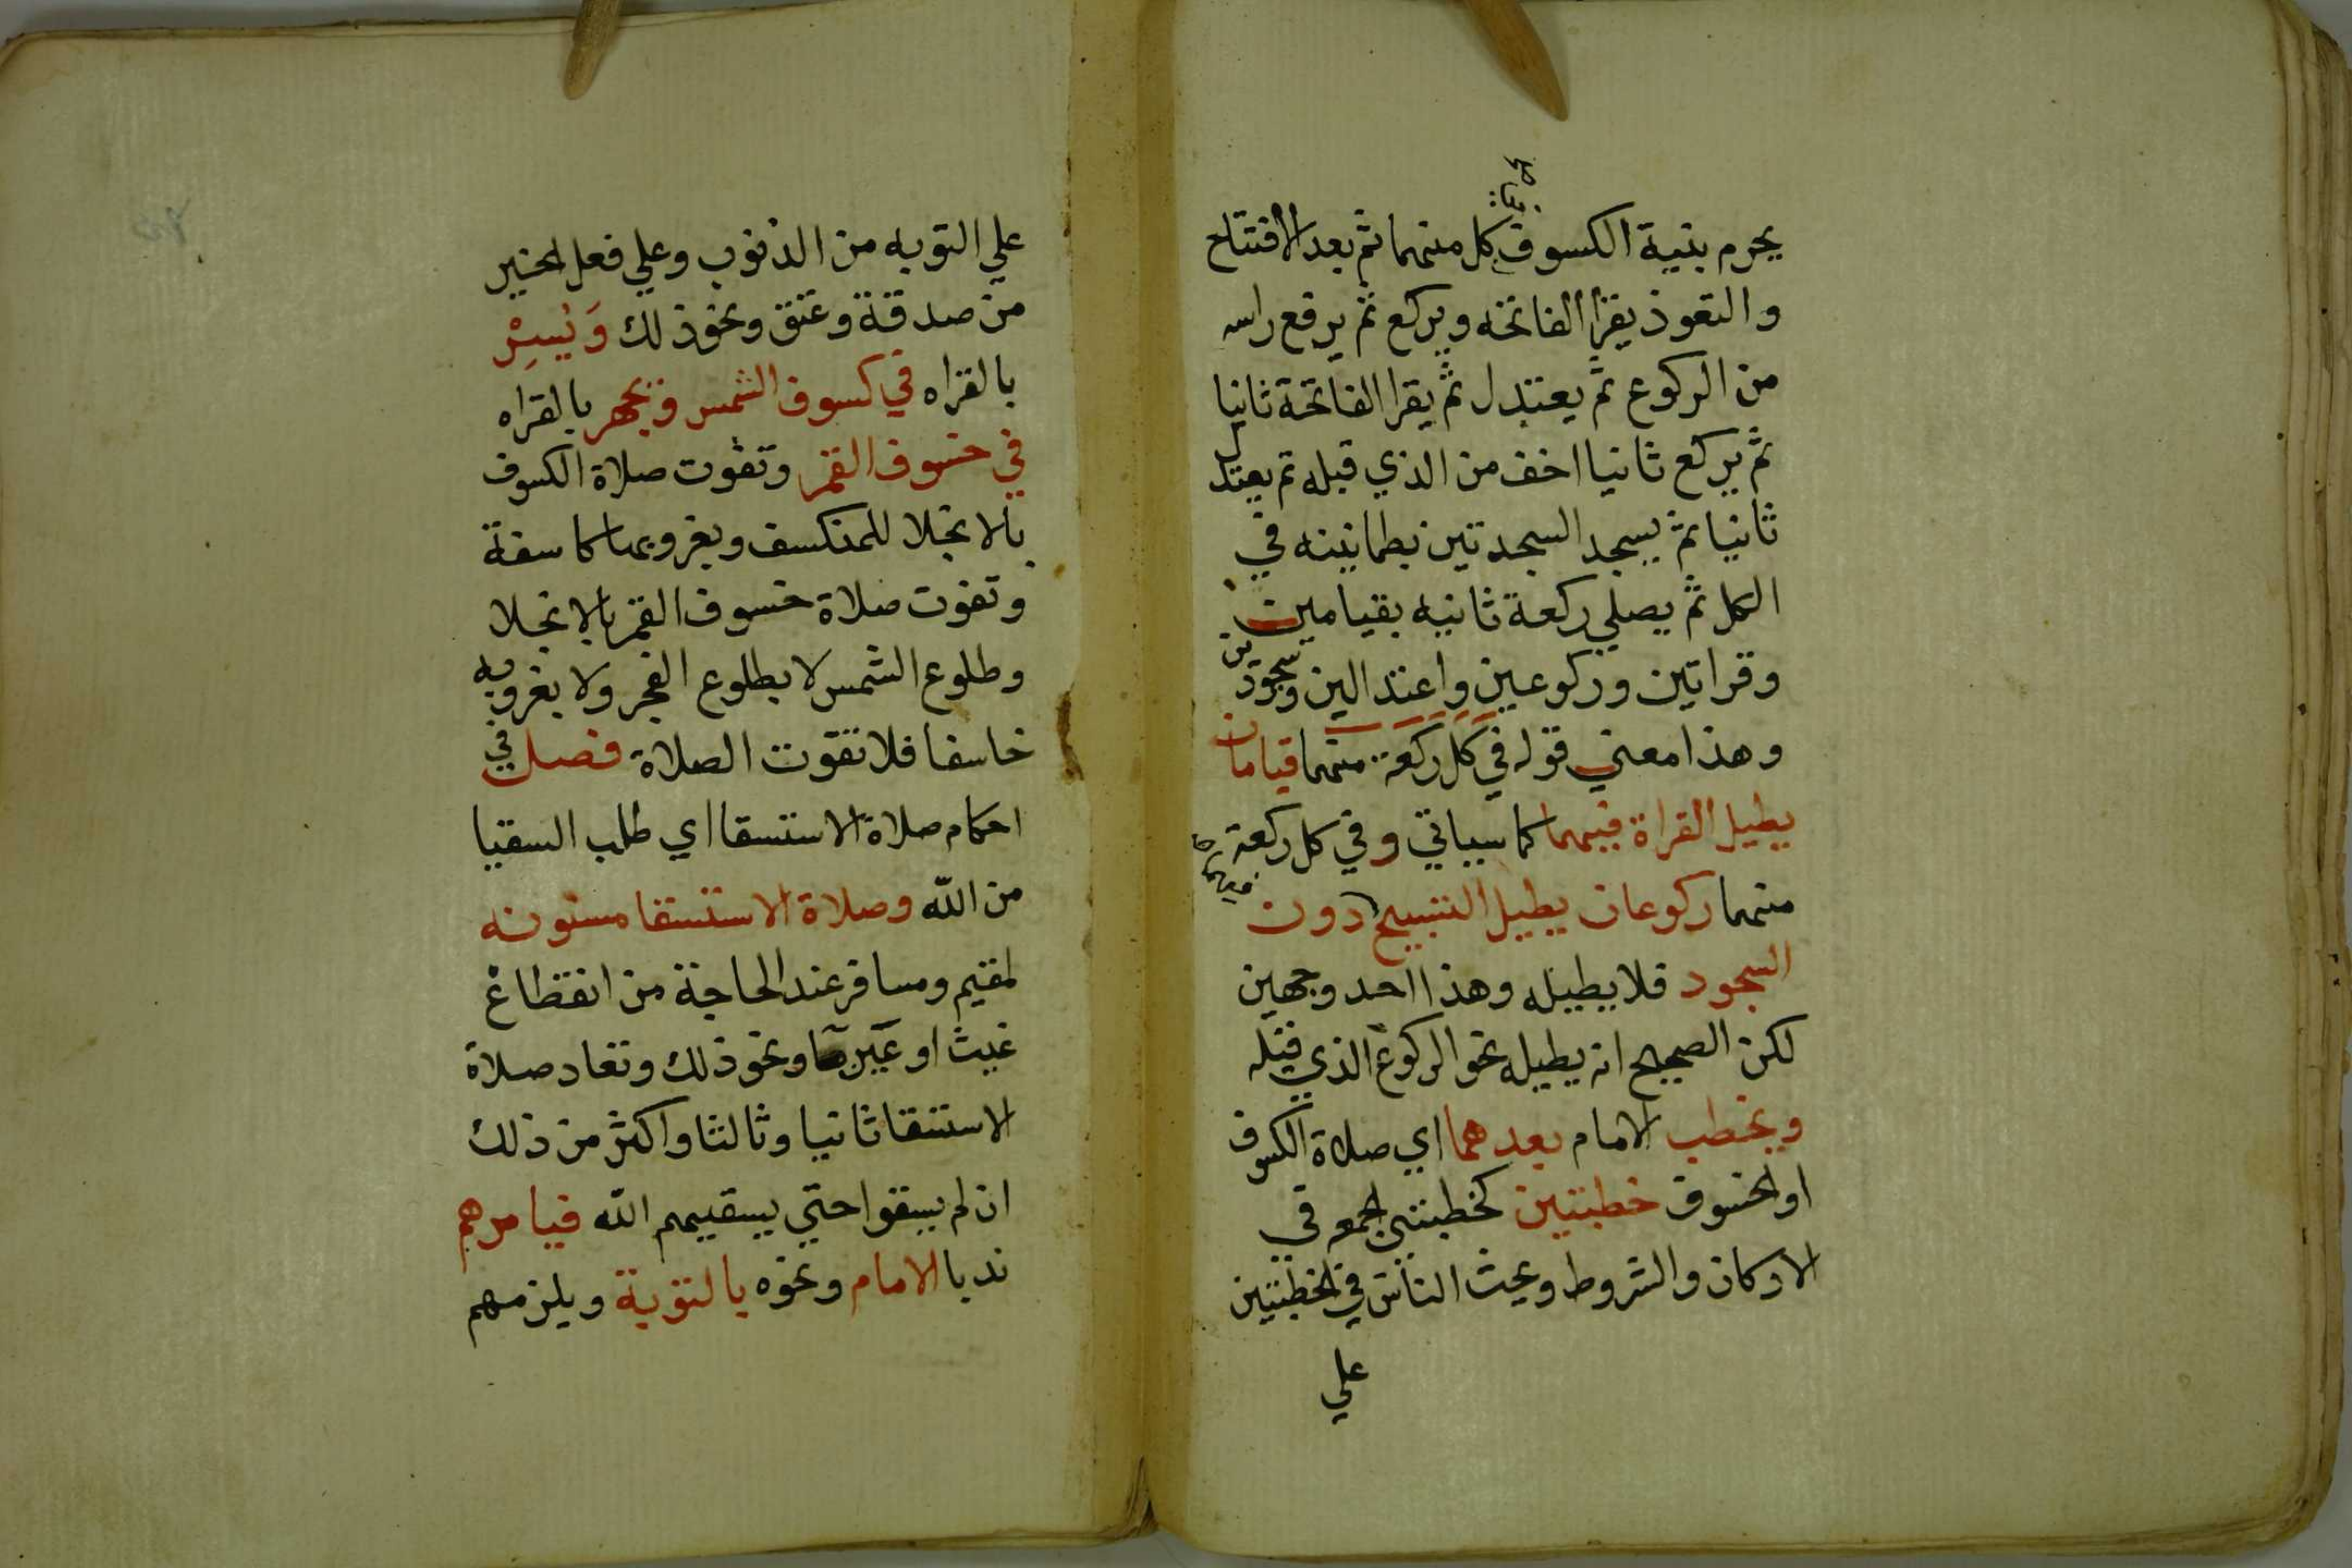 يحرم بنية الكسوف كل منهما ثم بعد الافتتاح
والتعوذ يقرا الفاتحه ويركع ثم يرفع راسه
من الركوع ثم يعتدل ثم يقرا الفاتحة ثانيا
ثم يركع ثانيا اخف من الذي قبله ثم يعتدل
ثانيا ثم يسجد السجدتين بطمانينه في
الكل ثم يصلي ركعة ثانيه بقيامين
وقراتين وركوعين واعتدالين وسجودين
وهذا معني قوله في كل ركعة منهما قيامان
يطيل القراة فيهما كما سياتي وفي كل ركعة
منهما ركوعان يطيل التسبيح دون
السجود فلا يطيله وهذا احد وجهين
لكن الصحيح انه يطيله نحو الركوع الذي قبله
ويخطب الامام بعدهما اي صلاة الكسوف
او الخسوف خطبتين كخطبتي الجمعه في
الاركان والشروط ويحث الناس في الخطبتين
علي
علي التوبه من الذنوب وعلي فعل الخير
من صدقة وعتق ونحو ذلك وَيُسِرّ
بالقراه في كسوف الشمس ويجهر بالقراه
في خسوف القمر وتفوت صلاة الكسوف
بالانجلا للمنكسف وبغروبها كاسفة
وتفوت صلاة خسوف القمر بالانجلا
وطلوع الشمس لا بطلوع الفجر ولا بغروبه
خاسفا فلا تفوت الصلاة فصل في
احكام صلاة الاستسقا اي طلب السقيا
من الله وصلاة الاستسقا مسنونه
لمقيم ومسافر عند الحاجة من انقطاع
غيث او عين ما ونحو ذلك وتعاد صلاة
الاستسقا ثانيا وثالثا واكثر من ذلك
ان لم يسقوا حتي يسقيهم الله فيامرهم
ندبا الامام ونحوه بالتوبة ويلزمهم